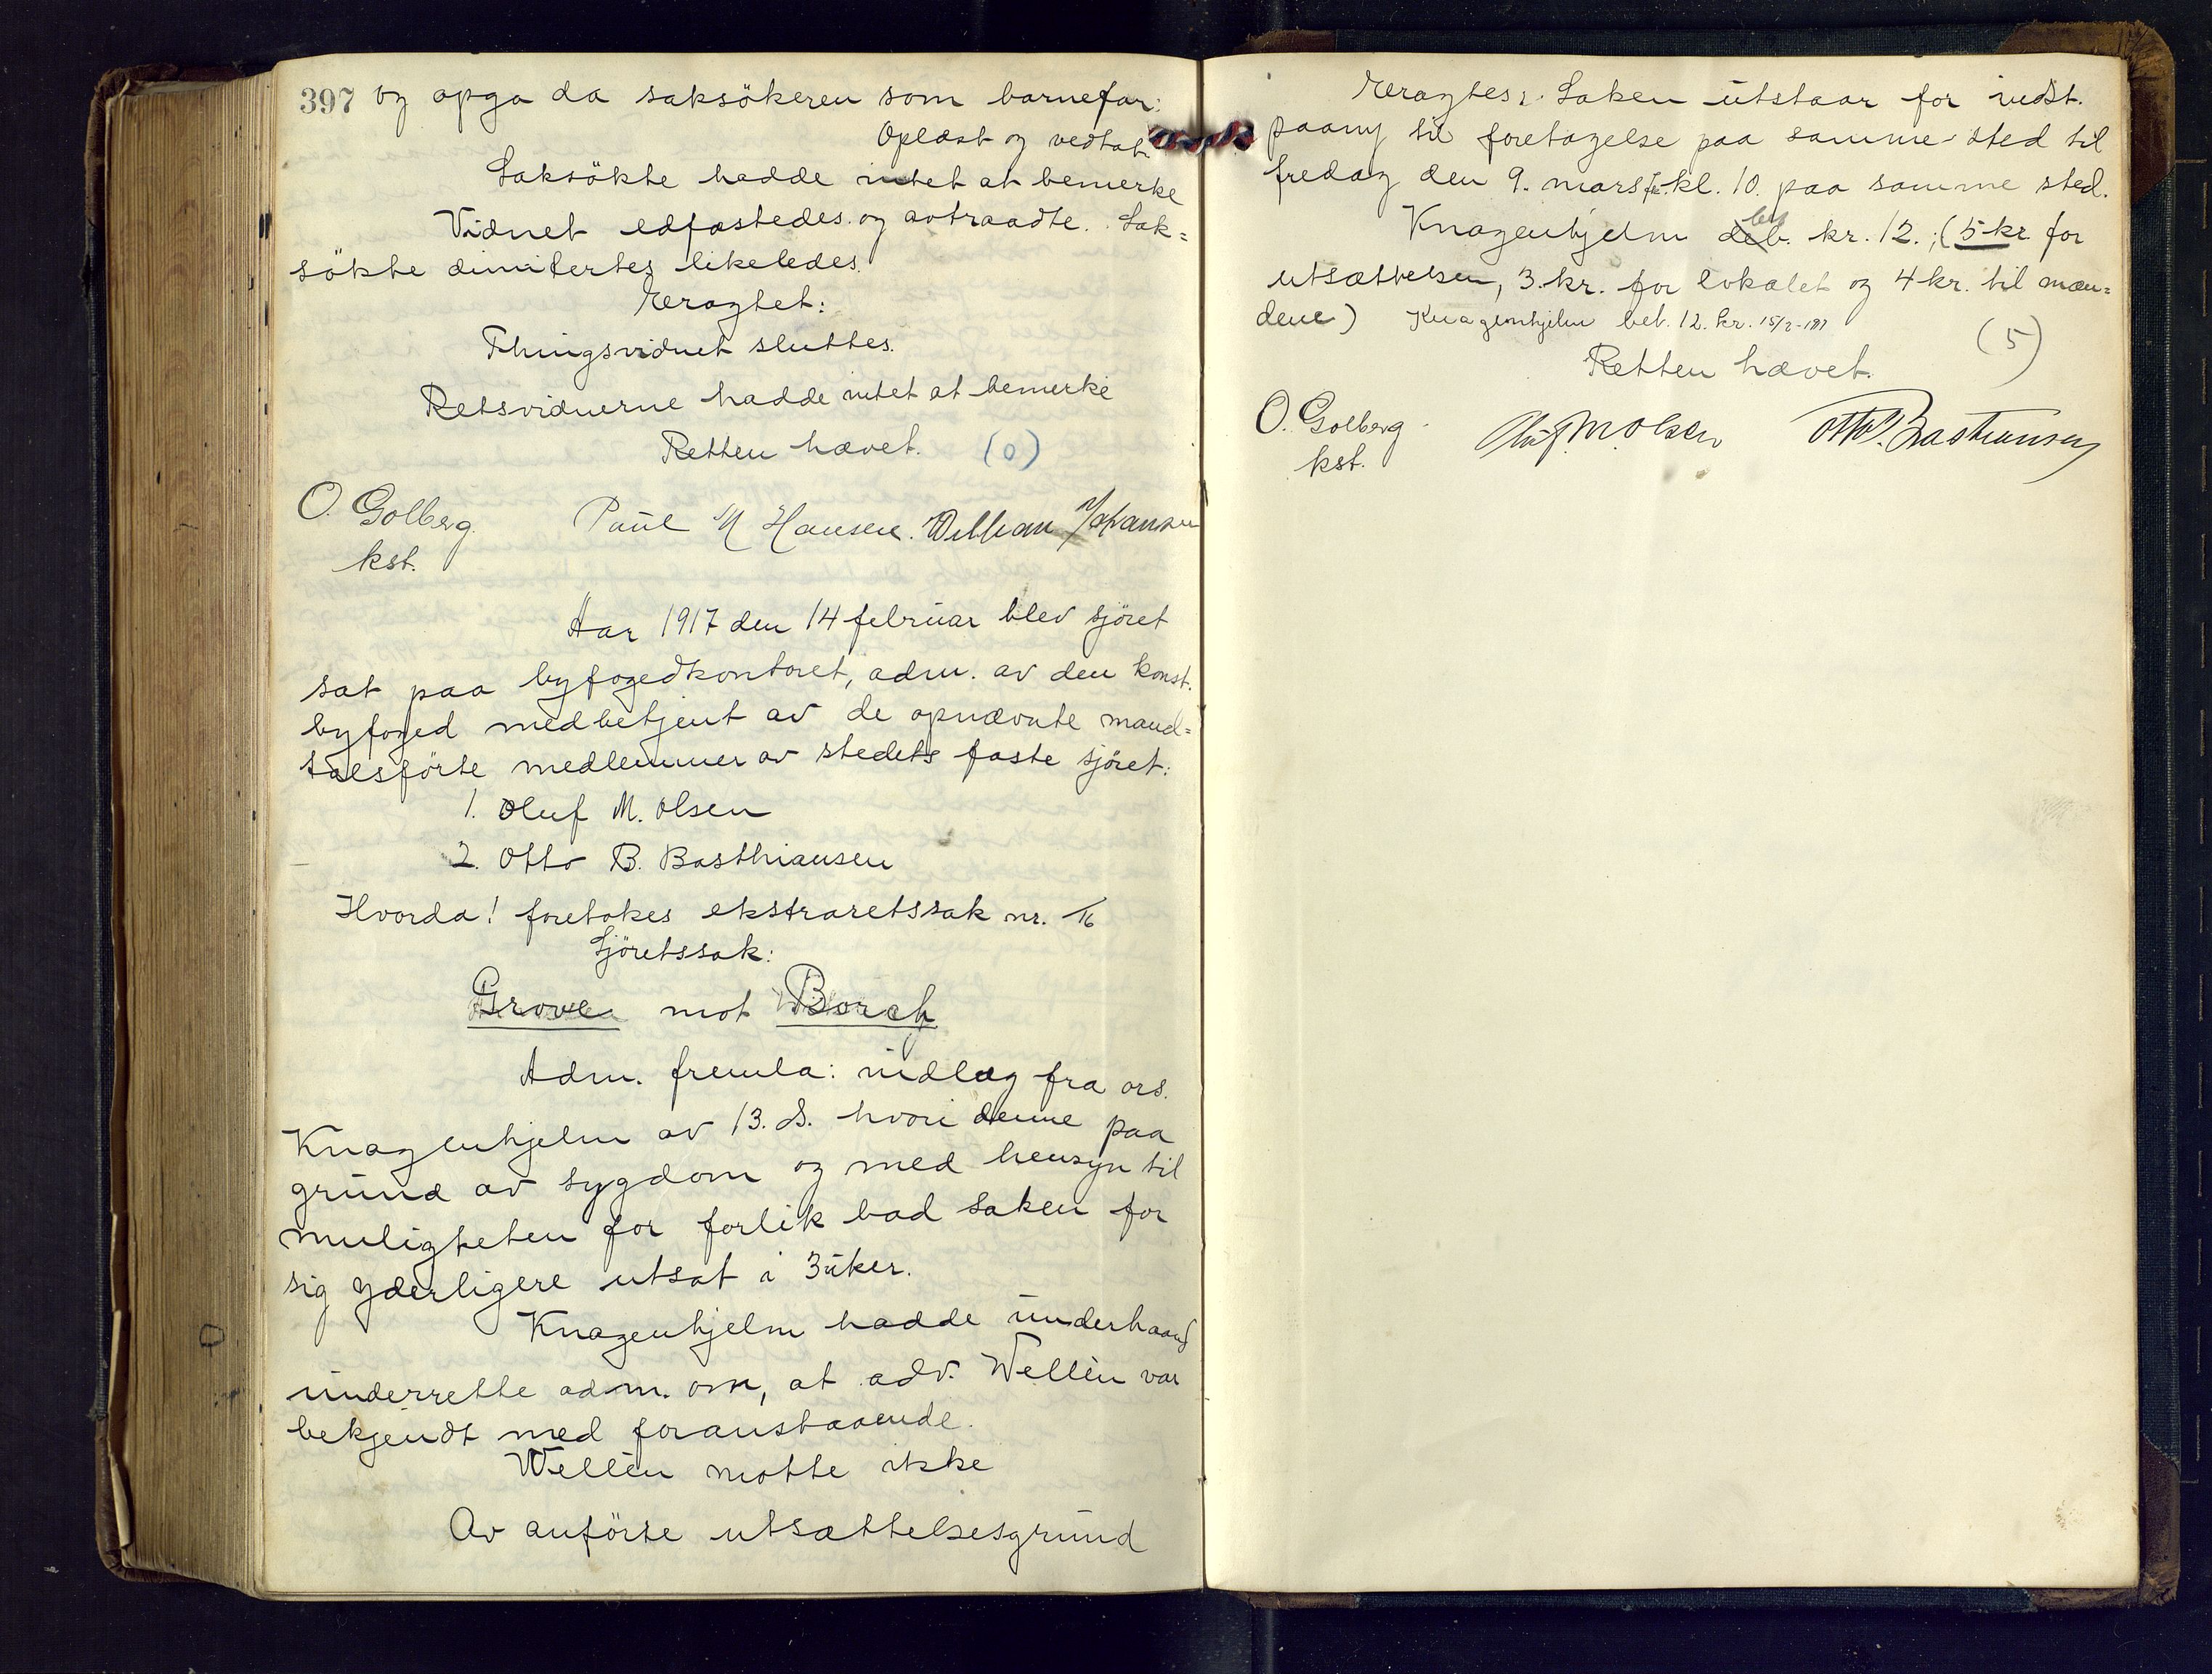 397 og opga da saksökeren som barnefar:
Oplæst og vedtat
Saksökte hadde intet at bemerke
Vidnet edfæstedes og avtraadte. Sak=
sökte dimitertes likeledes.
Eragtet:
Thingsvidnet sluttes.
Retsvidnerne hadde intet at bemerke
Retten hævet. (0)
O. Golberg. Paul M Hansen. William Johansen
kst.
Aar 1917 den 14 februar blev sjöret
sat paa byfogedkontoret, adm. av den konst.
byfoged medbetjent av de opnævnte mand=
talsförte medlemmer av stedets faste sjöret:
1. Oluf M. Olsen
2. Otto B. Basthiansen
Hvorda! foretokes ekstraretssak nr. /16
Sjöretssak:
Grove mot Borch
Adm. fremla: indlæg fra ors.
Knagenhjelm av 13. ds. hvori denne paa
grund av sygdom og med hensyn til
muligheten for forlik bad saken for
sig yderligere utsat i 3 uker.
Knagenhjelm hadde underhaand
underrettet adm. om, at adv. Wellén var
bekjendt med foranstaaende.
Wellén mötte ikke
Av anförte utsættelsesgrund
Eragtes: Saken utstaar for indst.
paany til foretagelse paa samme sted til
fredag den 9. mars kl. 10. paa samme sted.
Knagenhjelm deb. bet. kr. 12.; (5 kr for
utsættelsen, 3. kr. for lokalet og 4 kr. til mæn=
dene) Knagenhjelm bet. 12. kr. 15/2-1917
(5)
Retten hævet.
O. Golberg Oluf M Olsen Otto B. Basthiansen
kst.